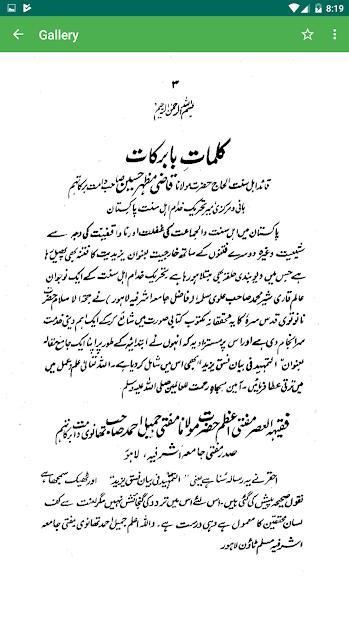 8:19
Gallery
۳
بسم اللہ الرحمٰن الرحیم
کلماتِ بابرکات
قائد اہل سنت الحاج حضرت مولانا قاضی مظہر حسین صاحب دامت برکاتہم
بانی و مرکزی امیر تحریک خدام اہل سنت پاکستان
پاکستان میں اہل سنت والجماعت کی غفلت اور ناواقفیت کی وجہ سے
شیعیت وغیرہ دوسرے فتنوں کے ساتھ خارجیت بعنوان یزیدیت کا فتنہ بھی پھیل رہا
ہے جس میں دیوبندی حلقہ بھی مبتلا ہو رہا ہے تحریک خدام اہل سنت کے ایک نوجوان
عالم قاری شیر محمد صاحب علوی سلمہ (فاضل جامعہ اشرفیہ لاہور) نے حجۃ الاسلام حضرت
نانوتوی قدس سرہ کا یہ محققانہ مکتوب کتابی صورت میں شائع کر کے ایک اہم دینی خدمت
سرانجام دی ہے اور اس پر مستزاد یہ کہ انہوں نے ابتدائیہ کے طور پر اپنا ایک جامع مقالہ
بعنوان "التمہید فی بیان فسق یزید" بھی اس میں شامل کر دیا ہے۔ اللہ تعالیٰ علم و عمل میں
مزید ترقی عطا فرمائیں۔ آمین بجاہ رحمت للعالمین صلی اللہ علیہ وسلم
فقیہ العصر مفتی اعظم حضرت مولانا مفتی جمیل احمد صاحب تھانوی دامت برکاتہم
صدر مفتی جامعہ اشرفیہ، لاہور
احقر نے یہ رسالہ سنا ہے یعنی "التمہید فی بیان فسق یزید" اور ٹھیک سمجھا ہے
نقول صحیحہ پیش کی گئی ہیں۔ اس لئے اس میں تردد کی گنجائش نہیں مگر لعنت سے کف
لسان محققین کا معمول ہے وہی درست ہے۔ واللہ اعلم جمیل احمد تھانوی مفتی جامعہ
اشرفیہ مسلم ٹاؤن لاہور